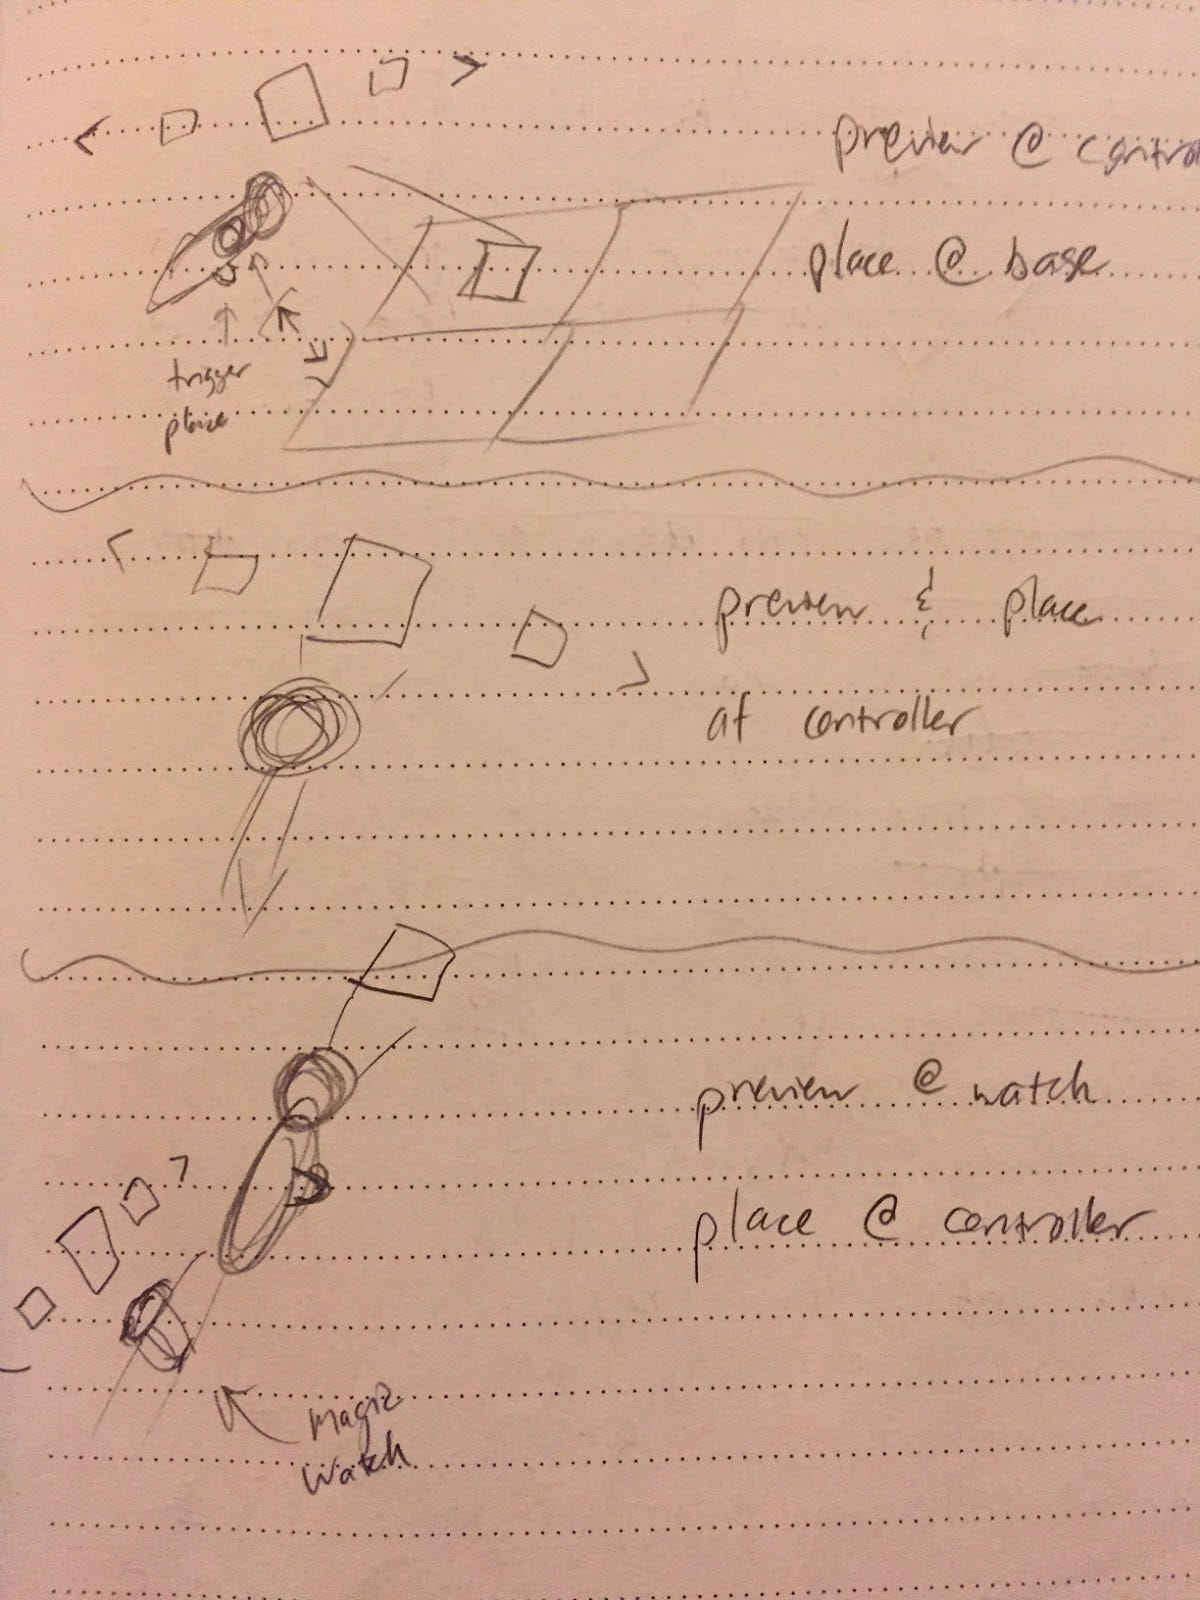 preview @ contro
place @ base
trigger
place
preview & place
at controller
preview @ watch
place @ controller
magic
watch